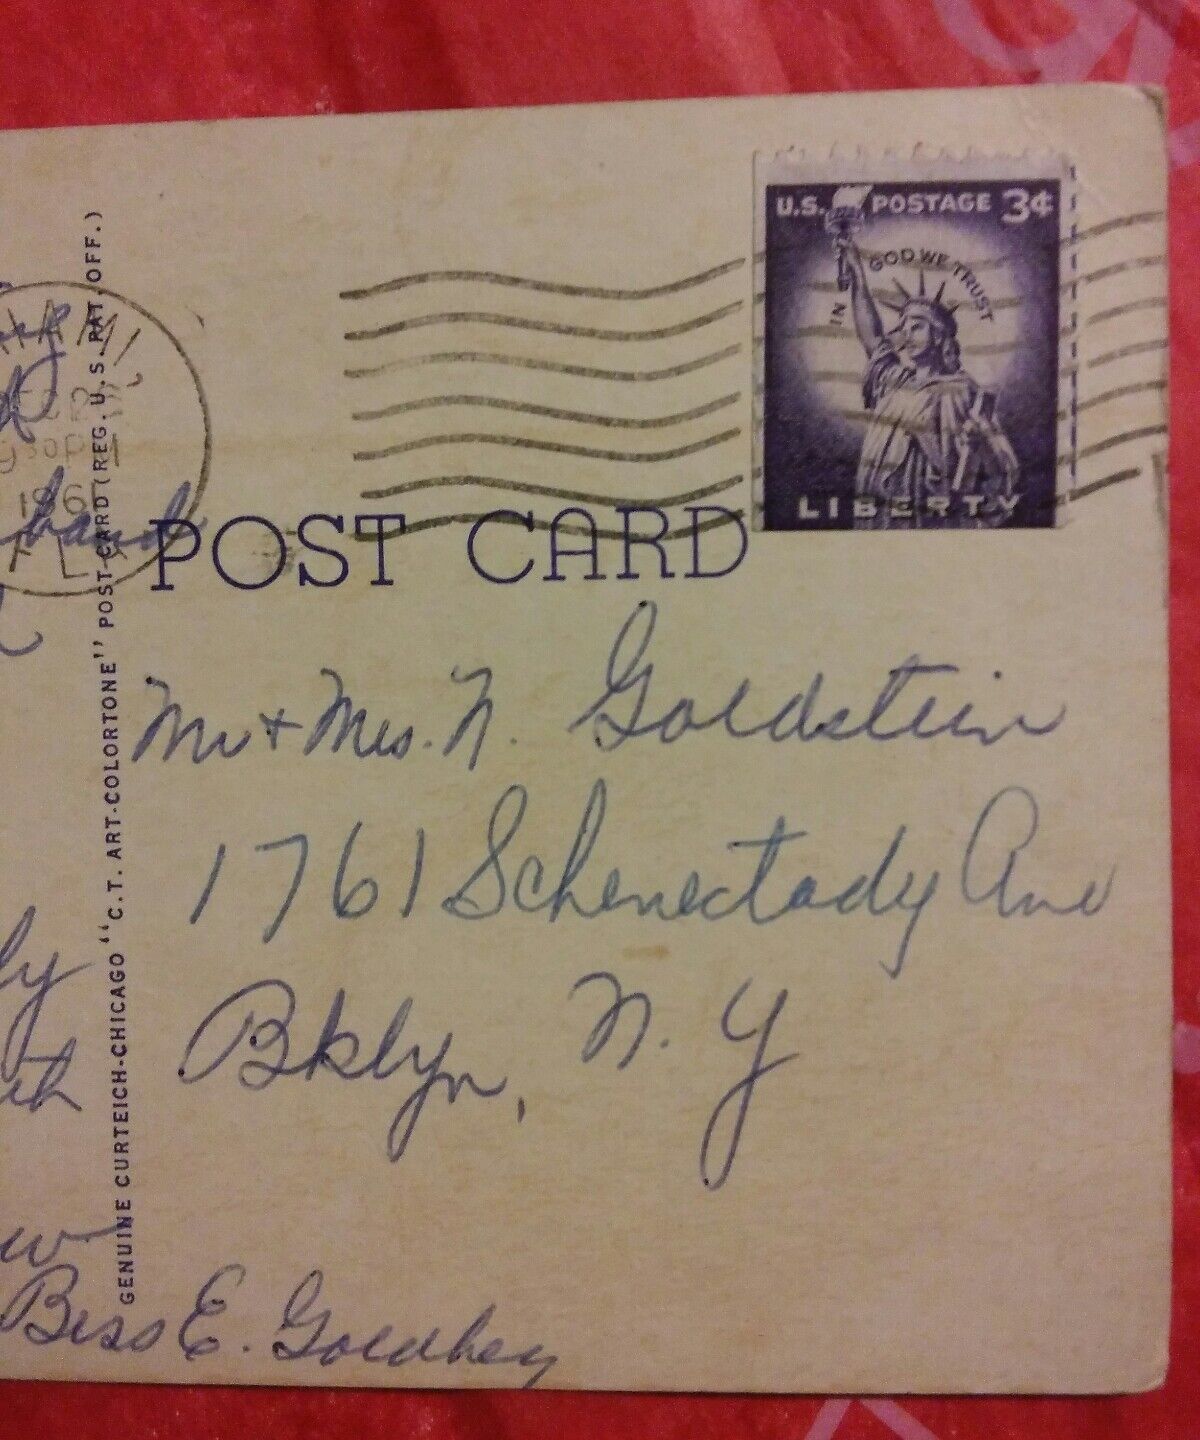 U.S. POSTAGE 3¢
IN GOD WE TRUST
LIBERTY
MIAMI
PM
196
FLA
POST CARD
Mr + Mrs. N. Goldstein
1761 Schenectady Ave
Bklyn, N. Y
GENUINE CURTEICH-CHICAGO "C.T. ART-COLORTONE" POST CARD (REG. U.S. PAT. OFF.)
Bess E.